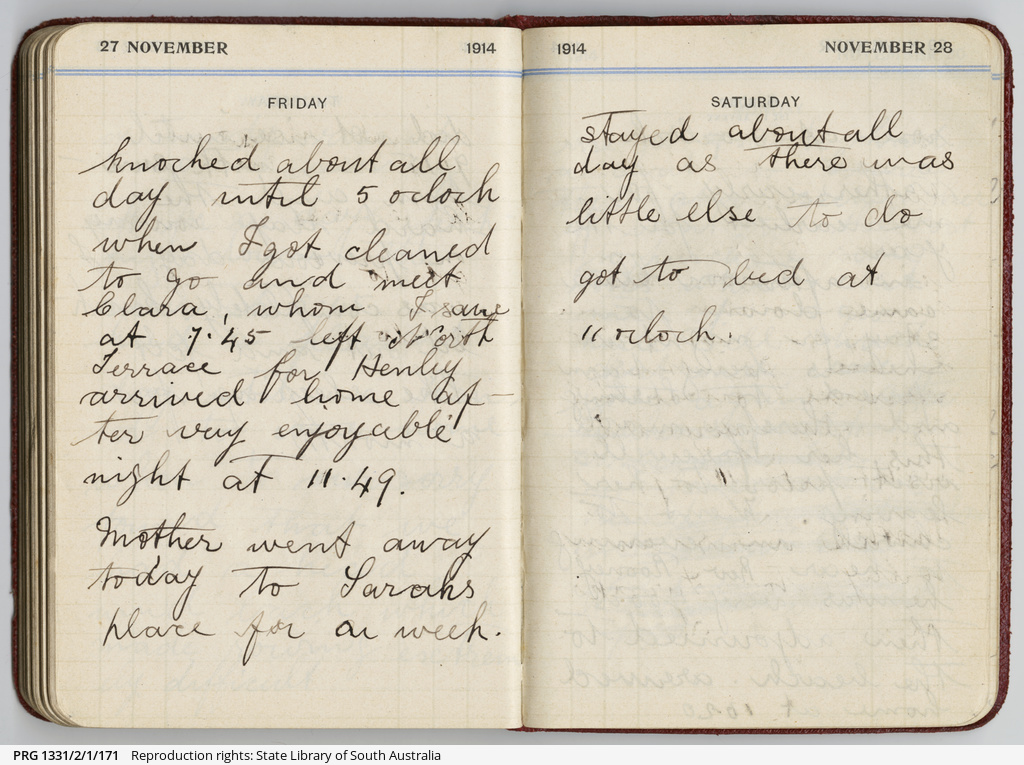 27 NOVEMBER 1914
FRIDAY
knocked about all
day until 5 oclock
when I got cleaned
to go and meet
Clara, whom I saw
at 7.45 left North
Terrace for Henley
arrived home af-
ter vay enjoyable
night at 11.49.
Mother went away
today to Sarahs
place for a week.
1914 NOVEMBER 28
SATURDAY
stayed about all
day as there was
little else to do
got to bed at
11 oclock.
PRG 1331/2/1/171 Reproduction rights: State Library of South Australia